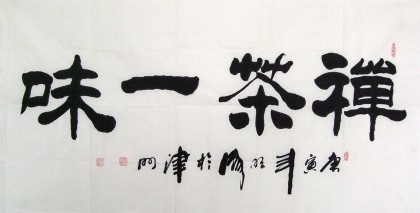 禪茶一味
庚寅年 於津門